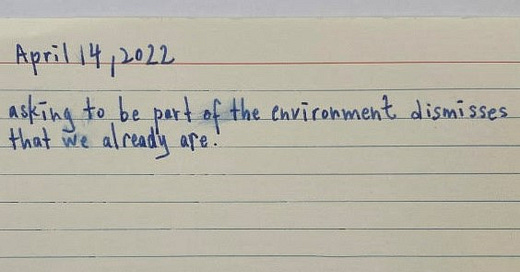 April 14, 2022
asking to be part of the environment dismisses
that we already are.